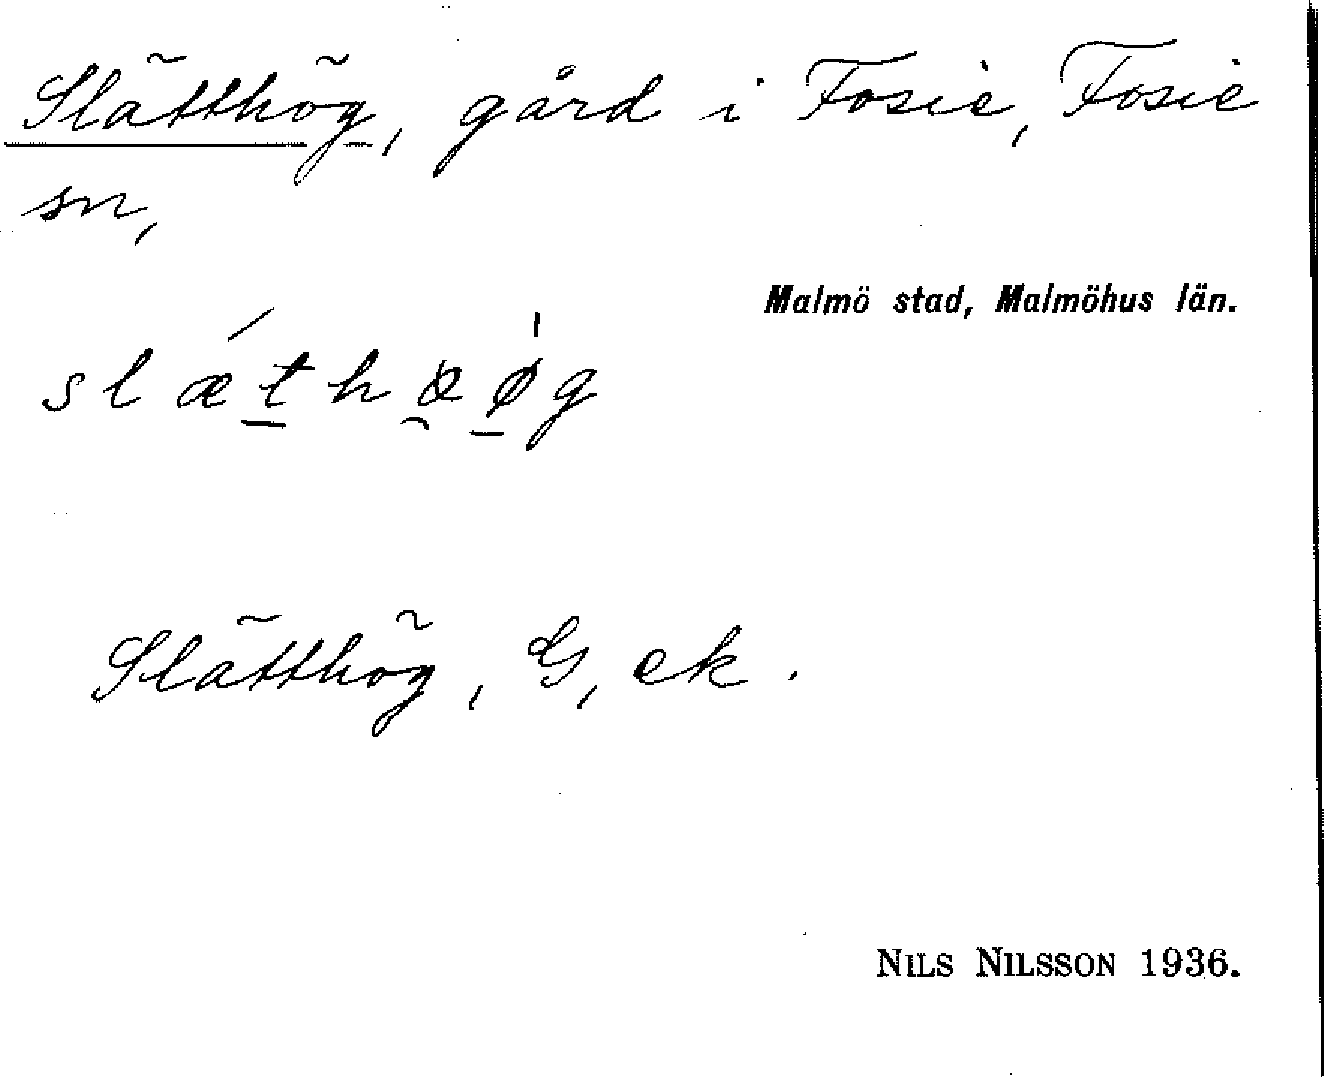 Slätthög, gård i Fosie, Fosie
sn,
Malmö stad, Malmöhus län.
Slätthög, G, ek.
NILS NILSSON 1936.